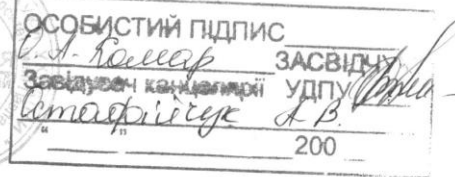 ОСОБИСТИЙ ПІДПИС
О. А. Комар ЗАСВІДЧУ
Завідувач канцелярії УДПУ
Астафійчук А. В.
“ ” 200